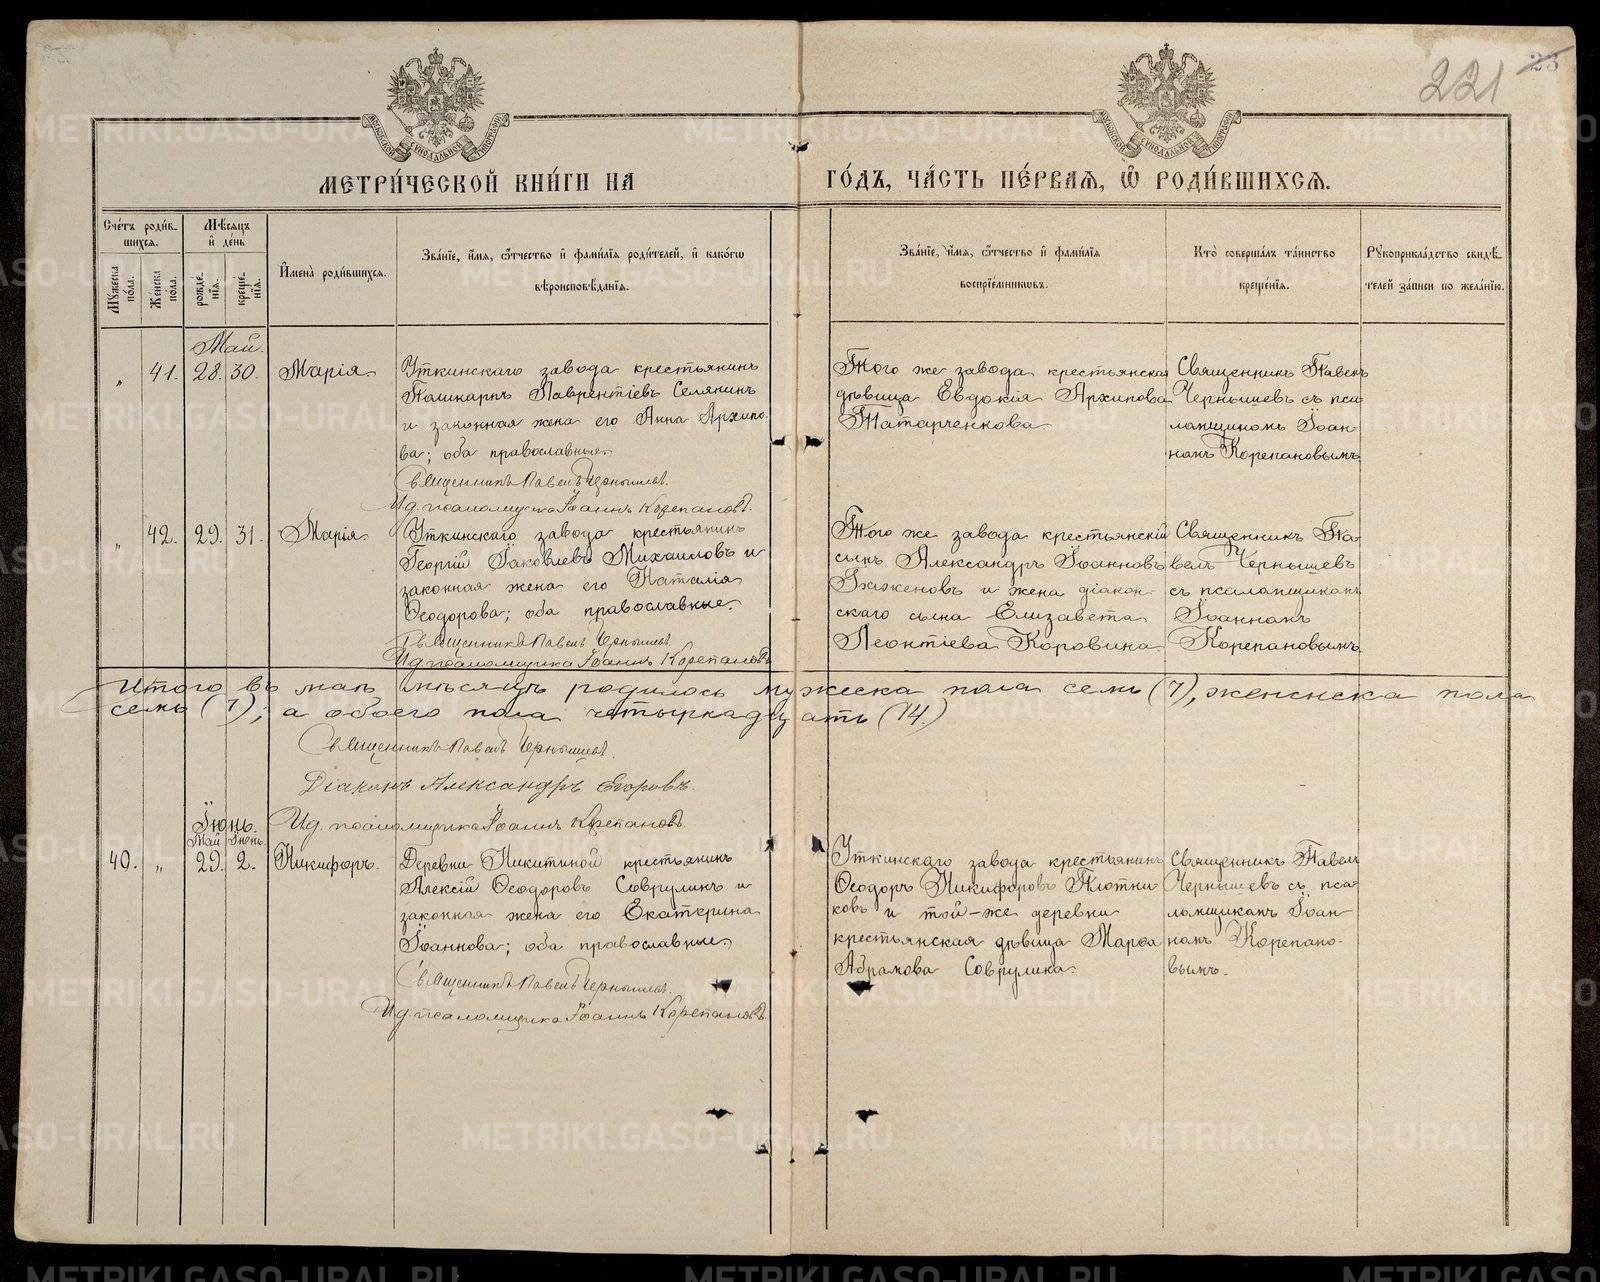 221
25
МОСКОВСКОЙ СѴНОДАЛЬНОЙ ТИПОГРАФІИ
МОСКОВСКОЙ СѴНОДАЛЬНОЙ ТИПОГРАФІИ
МЕТРИ́ЧЕСКОЙ КНИ́ГИ НА
ГО́ДЪ, ЧА́СТЬ ПЕ́РВАѦ, Ѽ РОДИ́ВШИХСѦ.
Сче́тъ роди́в-
шихсѧ.
Мѣ́сѧцъ
и҆ де́нь
Мꙋ́жеска
по́ла.
Же́нска
по́ла.
рожде́-
нїѧ.
креще́-
нїѧ.
И҆мена̀ роди́вшихсѧ.
Зва́нїе, и҆́мѧ, ѻ҆́тчество и҆ фами́лїѧ роди́телей, и҆ како́гѡ
вѣроисповѣ́данїѧ.
Зва́нїе, и҆́мѧ, ѻ҆́тчество и҆ фами́лїѧ
воспрїе́мникѡвъ.
Кто̀ соверша́лъ та́инство
креще́нїѧ.
Рꙋкоприкла́дство свидѣ́-
телей за́писи по жела́нїю.
Май.
„ 41. 28. 30. Марія
Уткинскаго завода крестьянинъ
Поликарпъ Лаврентіевъ Селянинъ
и законная жена его Анна Архипо-
ва; оба православные.
Священникъ Павелъ Чернышевъ.
И.д. псаломщика Іоаннъ Корепановъ.
Того же завода крестьянская
дѣвица Евдокія Архипова
Татарченкова
Священникъ Павелъ
Чернышевъ съ пса-
ломщикомъ Іоан-
номъ Корепановымъ.
„ 42. 29. 31. Марія
Уткинскаго завода крестьянинъ
Георгій Іаковлевъ Михаиловъ и
законная жена его Наталія
Ѳеодорова; оба православные.
Священникъ Павелъ Чернышевъ.
И.д. псаломщика Іоаннъ Корепановъ
Того же завода крестьянскій
сынъ Александръ Іоанновъ
Баженовъ и жена діакон-
скаго сына Елизавета
Леонтіева Коровина.
Священникъ Па-
велъ Чернышевъ
съ псаломщикомъ
Іоанномъ
Корепановымъ.
Итого въ маѣ мѣсяцѣ родилось мужеска пола семь (7), женска пола
семь (7); а обоего пола четырнадцать (14.)
Священникъ Павелъ Чернышевъ.
Діаконъ Александръ Егоровъ.
И.д. псаломщика Іоаннъ Корепановъ.
Іюнь.
Май Іюнь.
40. „ 29. 2. Никифоръ.
Деревни Никитиной крестьянинъ
Алексій Ѳеодоровъ Соврулинъ и
законная жена его Екатерина
Іоаннова; оба православные.
Священникъ Павелъ Чернышевъ.
И.д. псаломщика Іоаннъ Корепановъ.
Уткинскаго завода крестьянинъ
Ѳеодоръ Никифоровъ Плотни-
ковъ и той-же деревни
крестьянская дѣвица Марѳа
Абрамова Соврулина.
Священникъ Павелъ
Чернышевъ съ пса-
ломщикомъ Іоан-
номъ Корепано-
вымъ.
METRIKI.GASO-URAL.RU